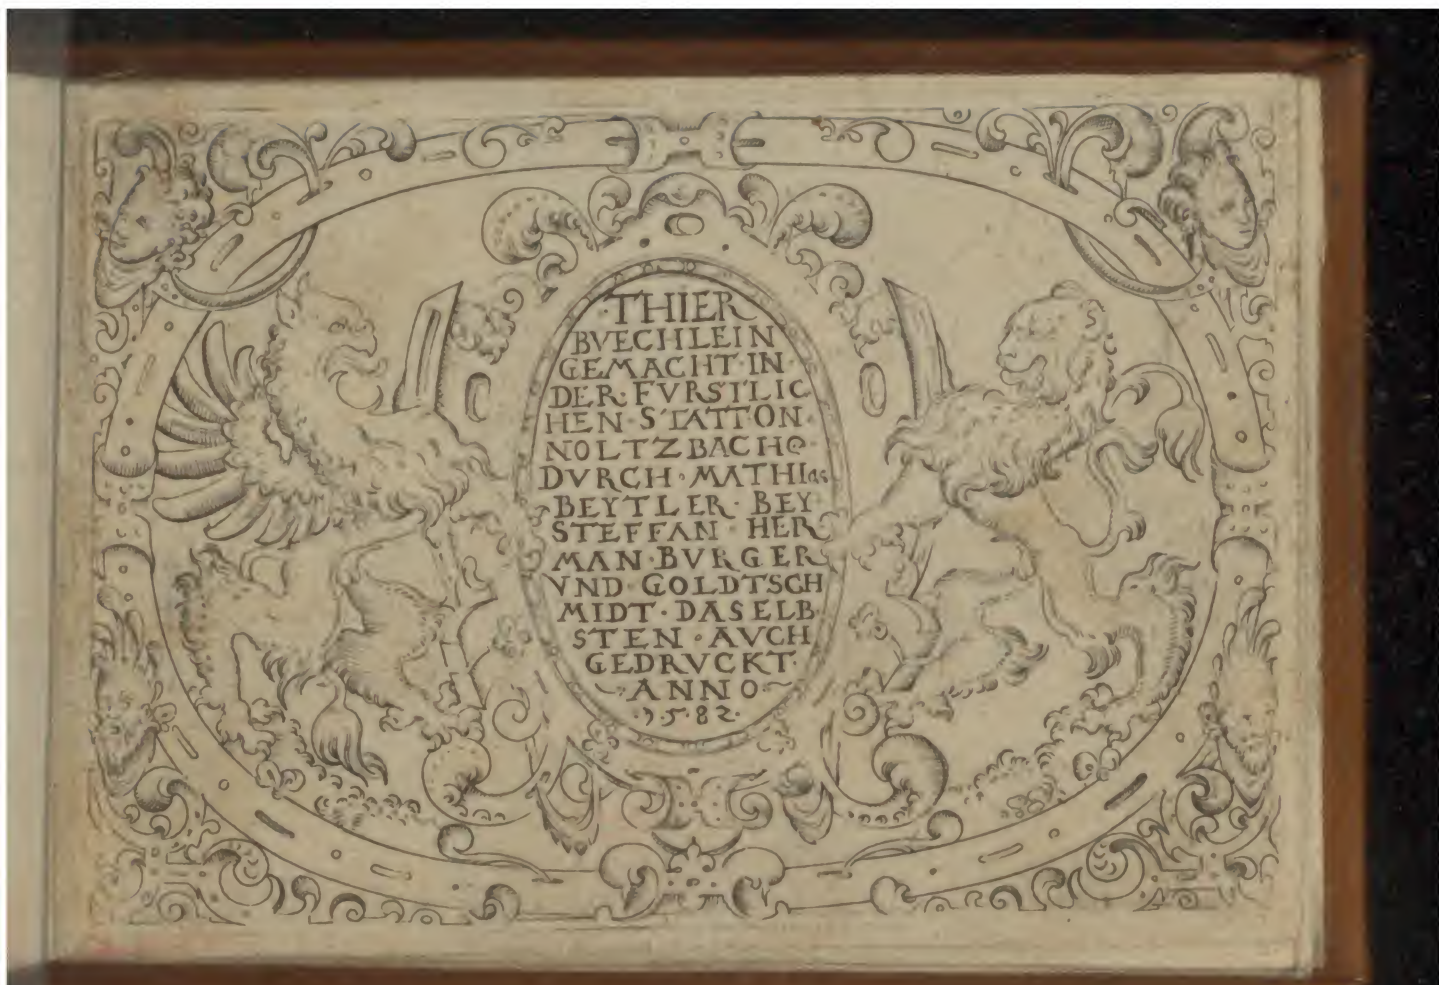 ·THIER
BVECHLEIN
GEMACHT·IN·
DER·FVRSTLIC
HEN·STATT·ON·
NOLTZBACH@·
DVRCH·MATHIas
BEYTLER·BEY
STEFFAN·HER
MAN·BVRGER
VND·GOLDTSCH
MIDT·DASELB
STEN·AVCH
GEDRVCKT·
~ANNO~
·1·5·82·